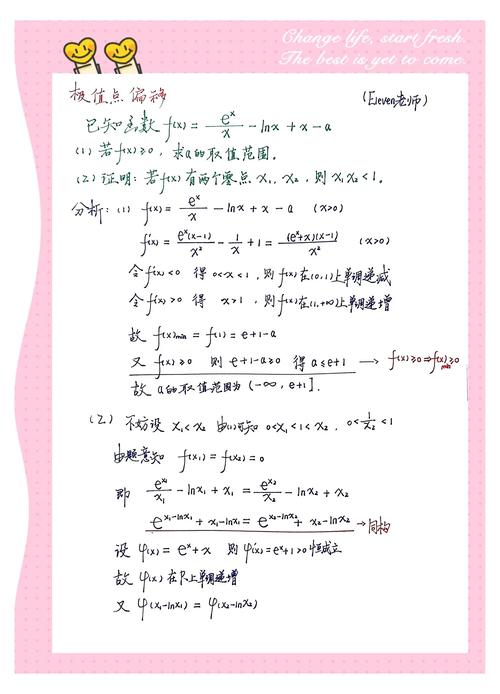 Change life, start fresh.
The best is yet to come.
极值点偏移 (Eleven老师)
已知函数 f(x) = e^x/x - lnx + x - a
(1) 若f(x)≥0, 求a的取值范围。
(2) 证明: 若f(x)有两个零点 x₁, x₂, 则 x₁x₂<1.
分析: (1) f(x) = e^x/x - lnx + x - a (x>0)
f'(x) = e^x(x-1)/x² - 1/x + 1 = (e^x+x)(x-1)/x² (x>0)
令f'(x)<0 得 0<x<1, 则f(x)在(0,1)上单调递减
令f'(x)>0 得 x>1, 则f(x)在(1,+∞)上单调递增
故 f(x)min = f(1) = e+1-a
又 f(x)≥0 则 e+1-a≥0 得 a≤e+1 → f(x)≥0⇒f(x)min≥0
故 a的取值范围为 (-∞, e+1].
(2) 不妨设 x₁<x₂ 由(1)可知 0<x₁<1<x₂, 0<1/x₂<1
由题意知 f(x₁) = f(x₂) = 0
即 e^x₁/x₁ - lnx₁ + x₁ = e^x₂/x₂ - lnx₂ + x₂
e^(x₁-lnx₁) + x₁-lnx₁ = e^(x₂-lnx₂) + x₂-lnx₂ → 同构
设 φ(x) = e^x + x 则 φ'(x) = e^x+1>0 恒成立
故 φ(x) 在R上单调递增
又 φ(x₁-lnx₁) = φ(x₂-lnx₂)